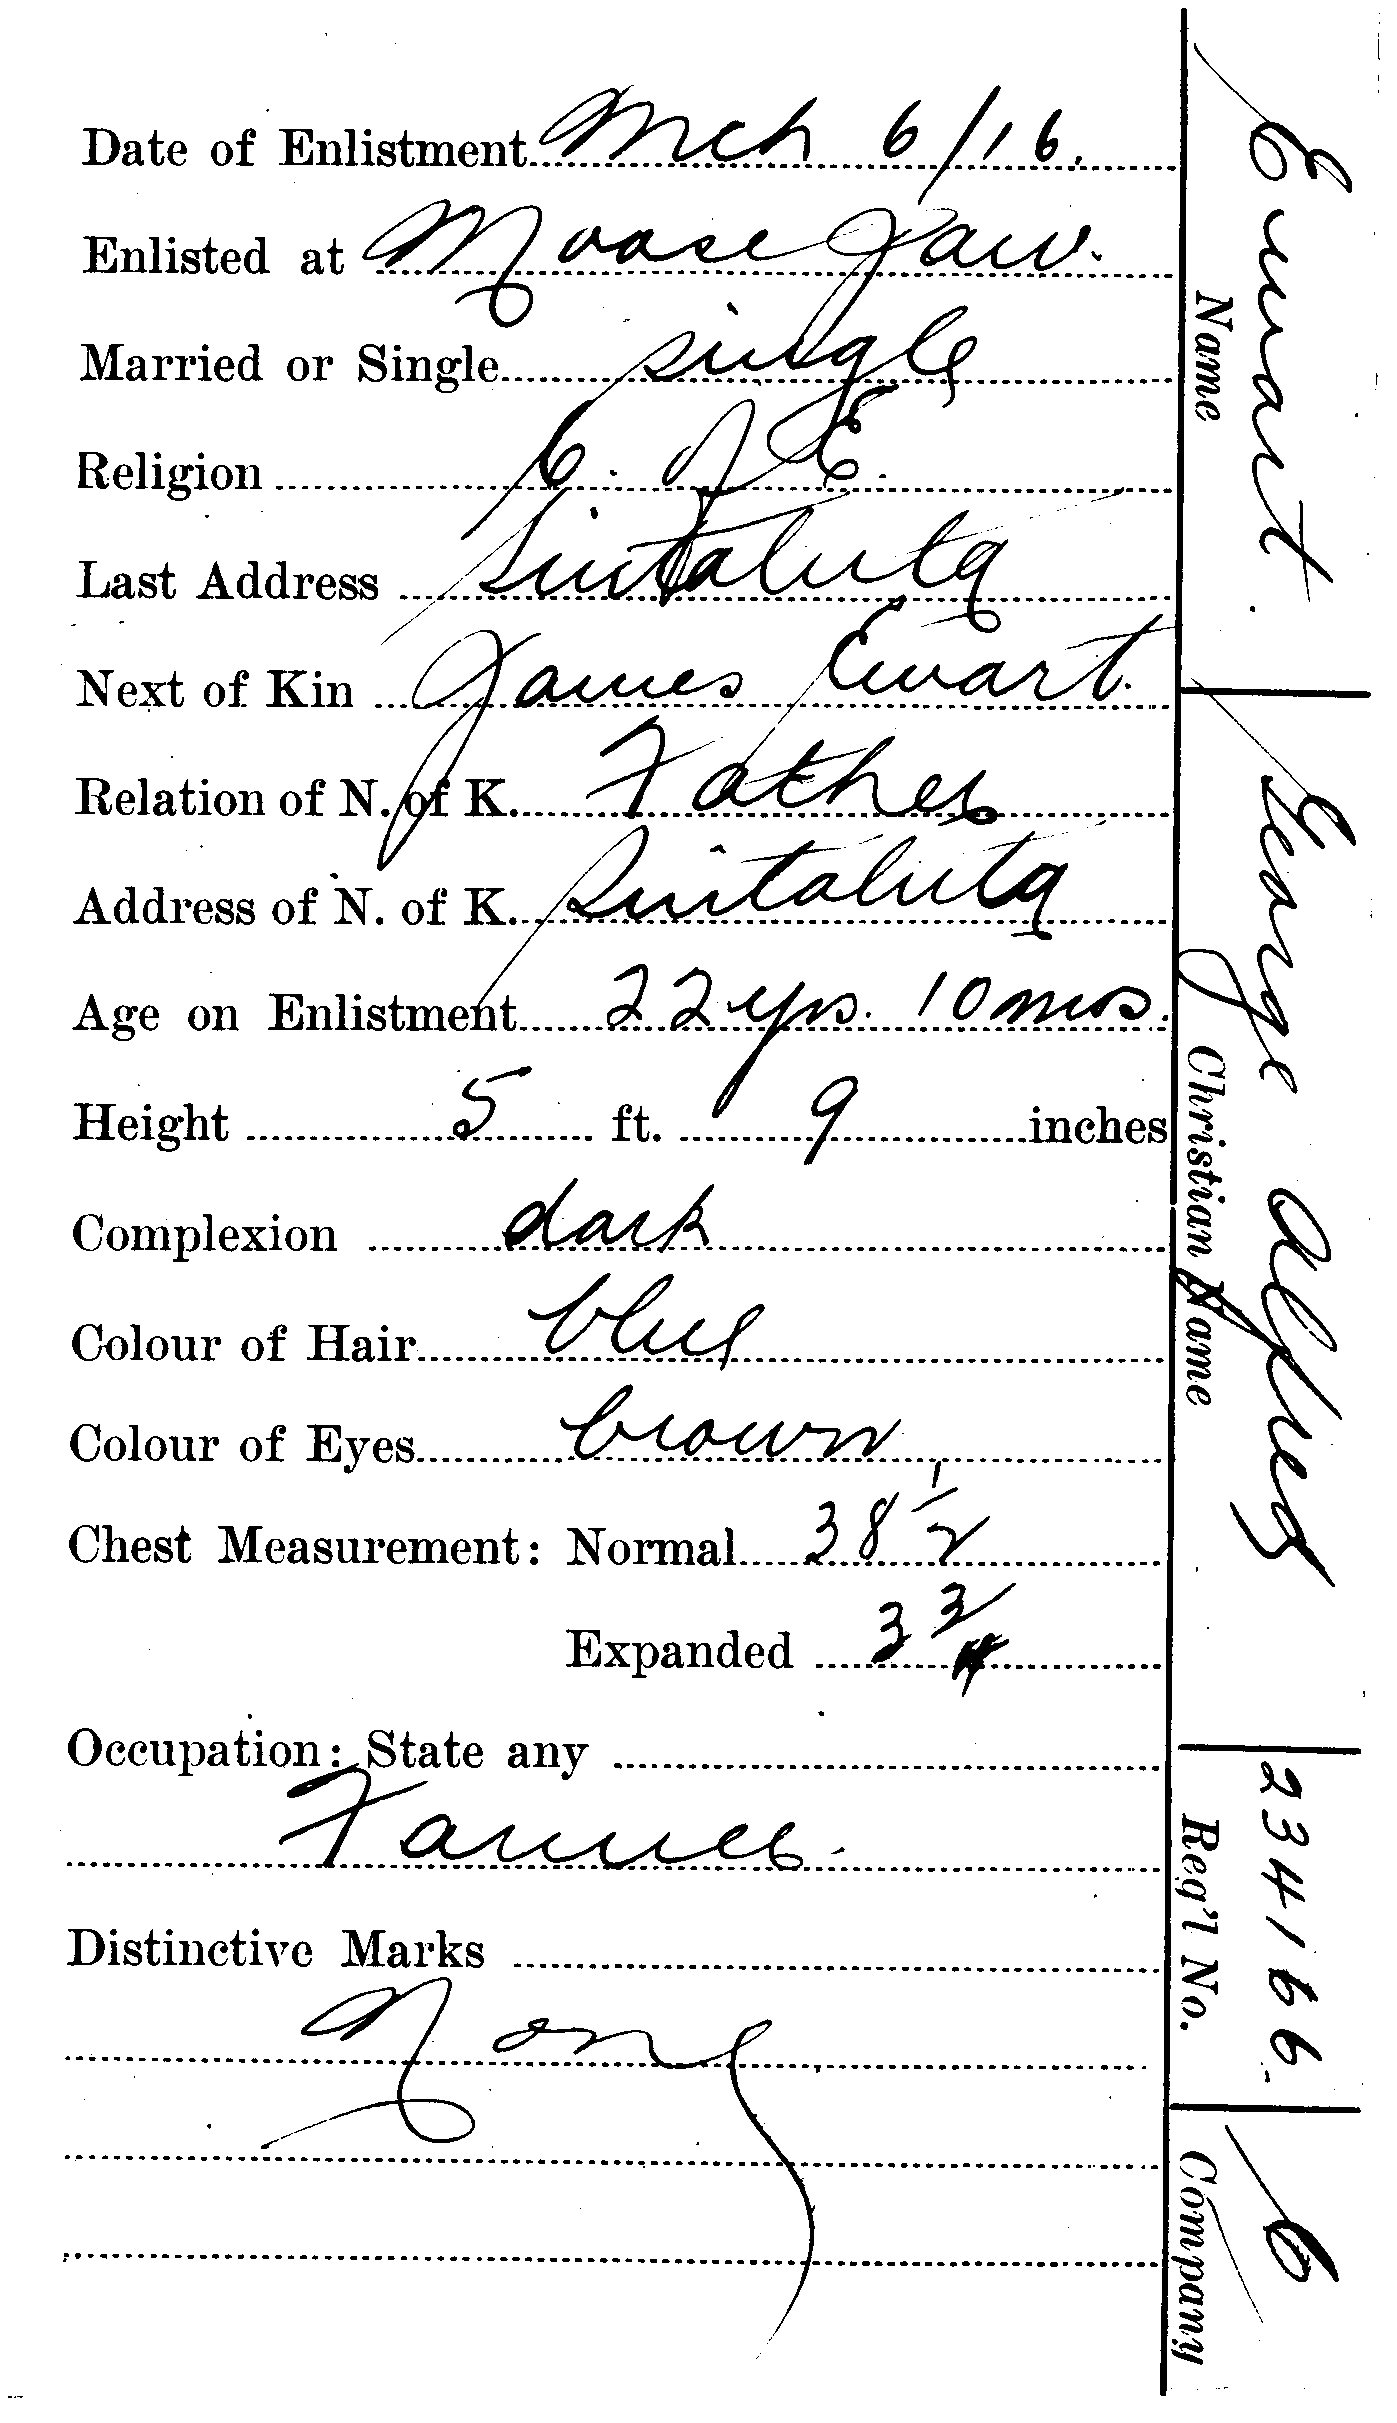 Date of Enlistment Mch 6/16.
Enlisted at Moose Jaw.
Married or Single single
Religion C. of E.
Last Address Sintaluta
Next of Kin James Ewart.
Relation of N. of K. Father
Address of N. of K. Sintaluta
Age on Enlistment 22 yrs. 10 mos.
Height 5 ft. 9 inches
Complexion dark
Colour of Hair blue
Colour of Eyes brown
Chest Measurement: Normal 38 1/2
Expanded 3 3/4
Occupation: State any
Farmer.
Distinctive Marks
None
Ewart.
Name
George Alfred
Christian Name
234166.
Reg'l No.
C
Company